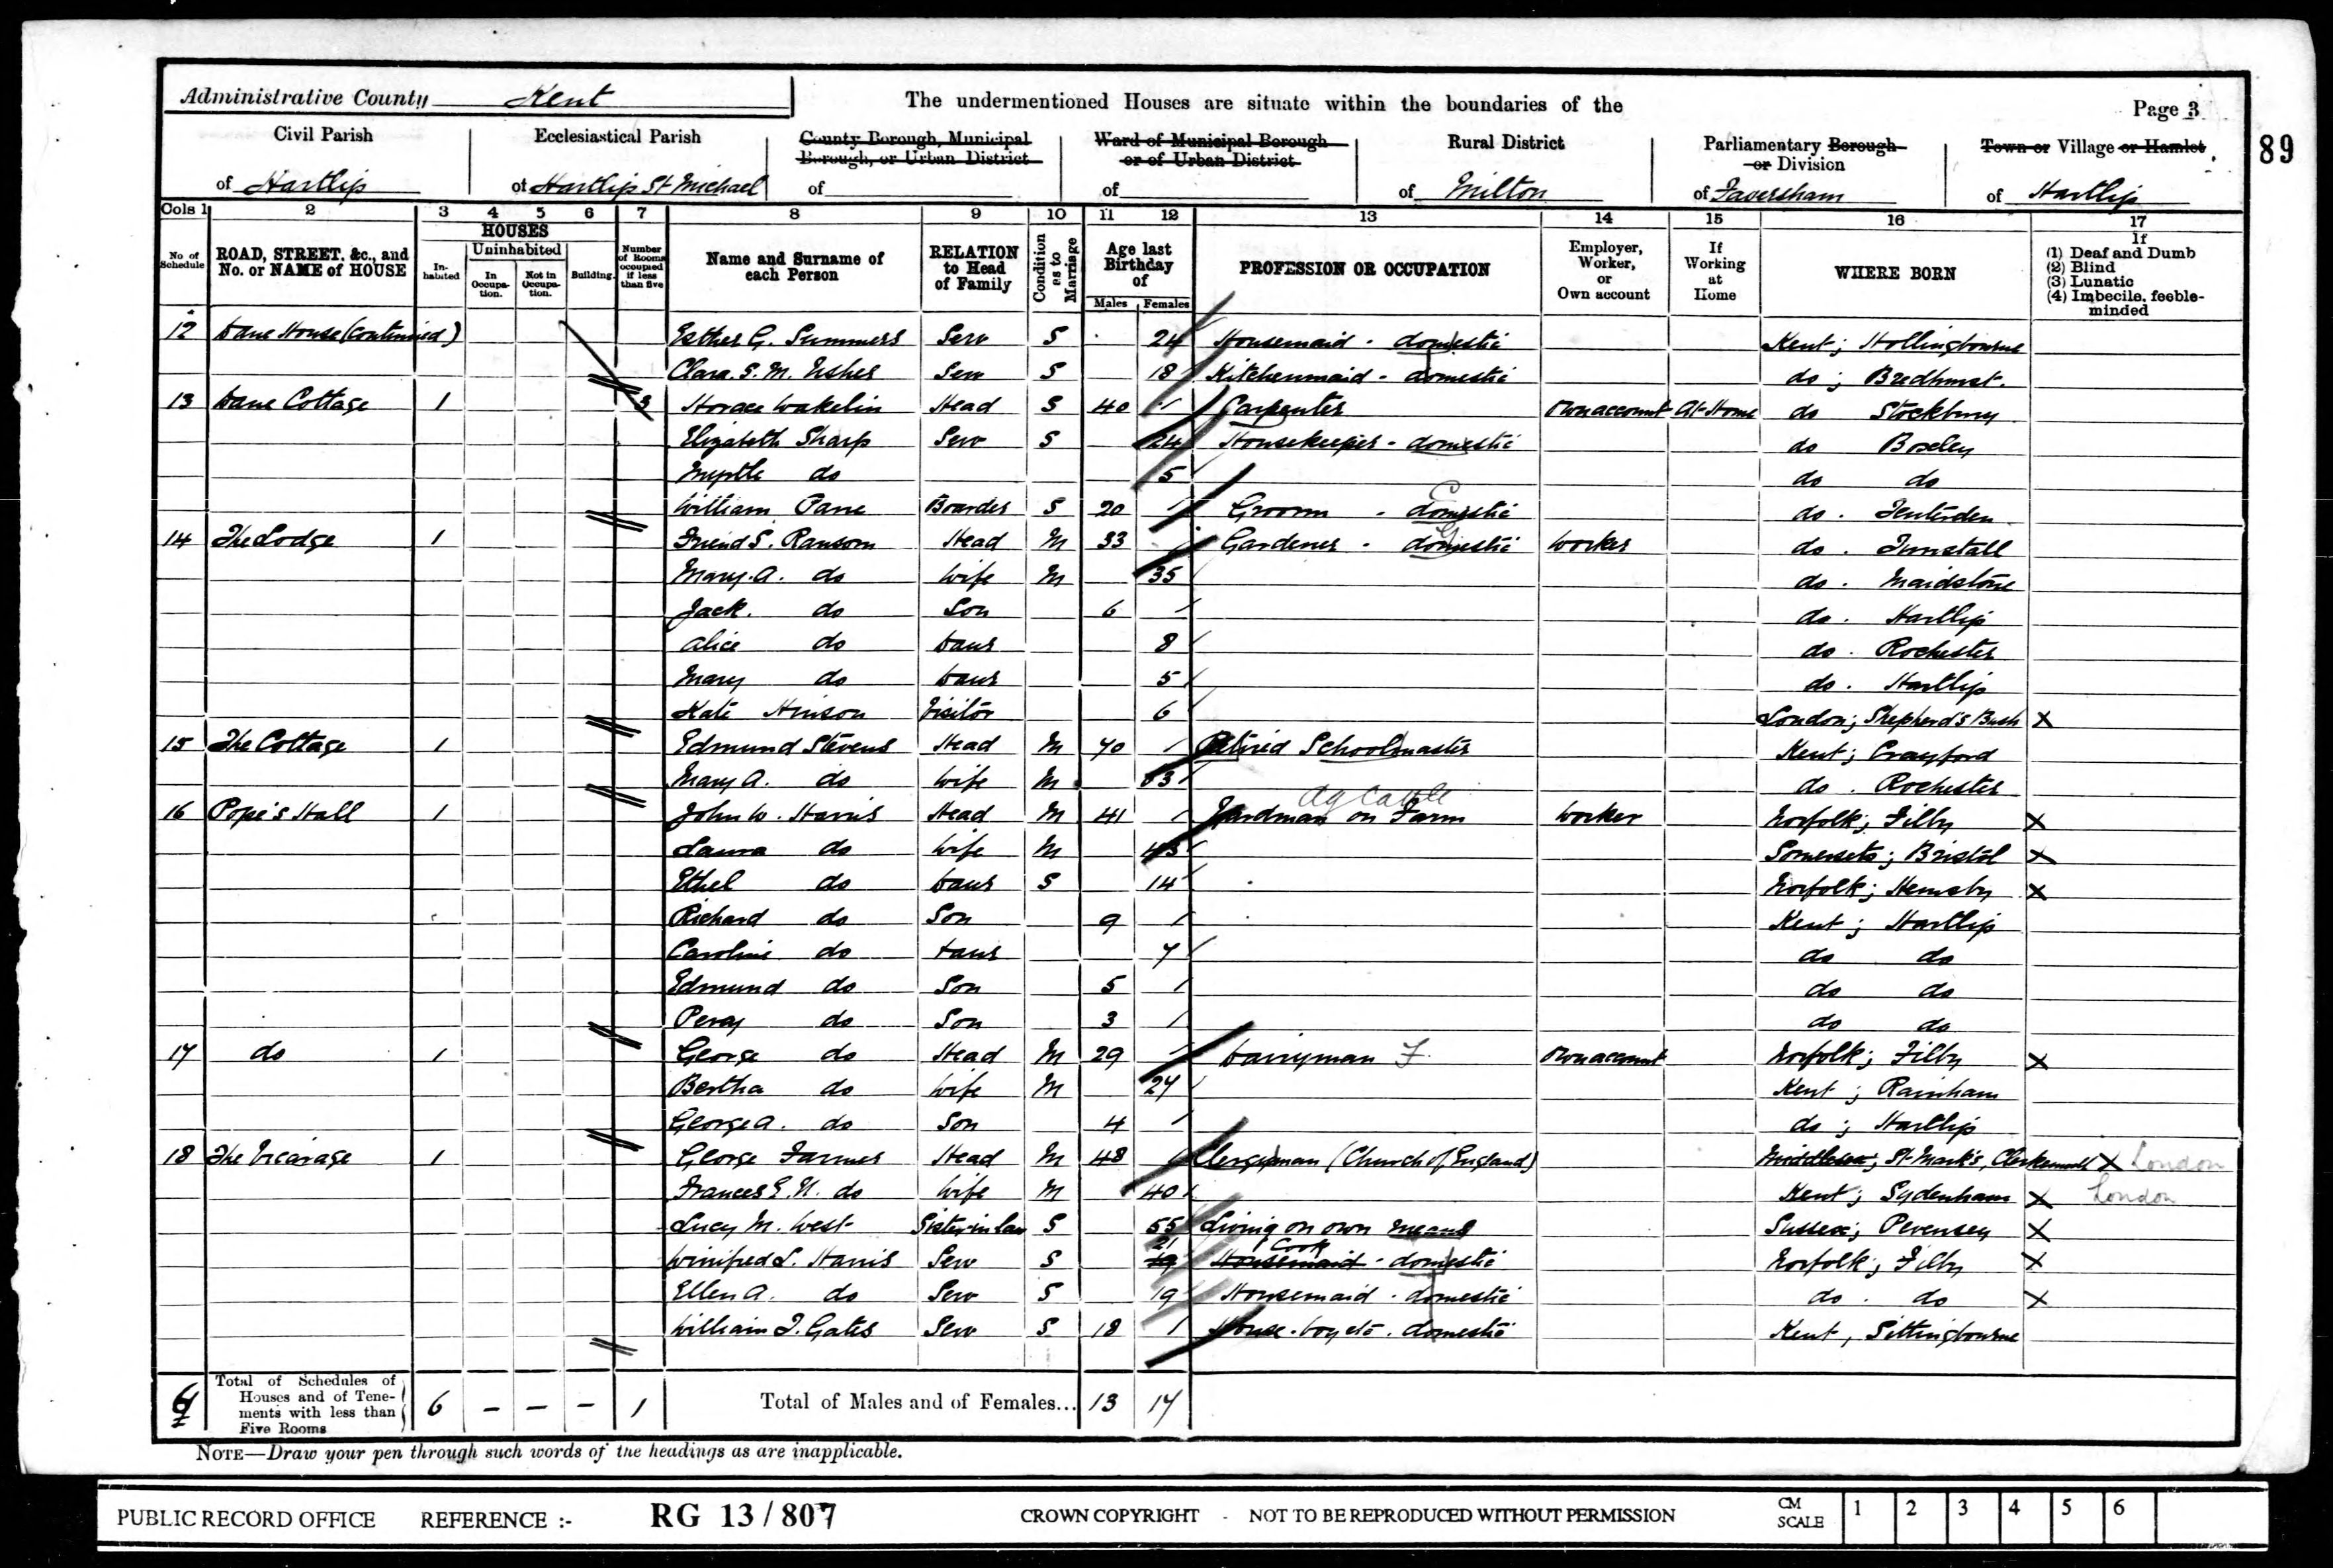 Administrative County Kent
The undermentioned Houses are situate within the boundaries of the
Page 3
89
Civil Parish of Hartlip
Ecclesiastical Parish of Hartlip St Michael
County Borough, Municipal Borough, or Urban District of
Ward of Municipal Borough or of Urban District of
Rural District of Milton
Parliamentary Borough or Division of Faversham
Town or Village or Hamlet of Hartlip
Cols 1 2 3 4 5 6 7 8 9 10 11 12 13 14 15 16 17
No of Schedule
ROAD, STREET, &c., and No. or NAME of HOUSE
HOUSES
Inhabited
Uninhabited
In Occupation.
Not in Occupation.
Building.
Number of Rooms occupied if less than five
Name and Surname of each Person
RELATION to Head of Family
Condition as to Marriage
Age last Birthday of
Males Females
PROFESSION OR OCCUPATION
Employer, Worker, or Own account
If Working at Home
WHERE BORN
If
(1) Deaf and Dumb
(2) Blind
(3) Lunatic
(4) Imbecile, feeble-minded
12 Dane House (Continued) Esther G. Summers Serv S 24 Housemaid - domestic Kent; Hollingbourne
Clara. S. M. Usher Serv S 18 Kitchenmaid - domestic do ; Bredhurst.
13 Dane Cottage 1 3 Horace Wakelin Head S 40 Carpenter Own account At Home do Stockbury
Elizabeth Sharp Serv S 24 Housekeeper - domestic do Boxley
Myrtle do 5 do do
William Pane Boarder S 20 Groom - domestic do. Tenterden
14 The Lodge 1 Friend S. Ransom Head M 33 Gardener - domestic Worker do. Tunstall
Mary. A. do Wife M 35 do. Maidstone
Jack. do Son 6 do. Hartlip
Alice do Daur 8 do. Rochester
Mary do Daur 5 do. Hartlip
Kate Hinson Visitor 6 London; Shepherd's Bush X
15 The Cottage 1 Edmund Stevens Head M 70 Retired Schoolmaster Kent; Crayford
Mary A. do Wife M 63 do. Rochester
Ag Cattle
16 Pope's Hall 1 John W. Harris Head M 41 Yardman on Farm Worker Norfolk; Filby X
Laura do Wife M 43 Somersets; Bristol X
Ethel do Daur S 14 Norfolk; Hemsby X
Richard do Son 9 Kent; Hartlip
Caroline do Daur 7 do do
Edmund do Son 5 do do
Percy do Son 3 do do
17 do 1 George do Head M 29 Dairyman F. Own account Norfolk; Filby X
Bertha do Wife M 27 Kent; Rainham
George A. do Son 4 do; Hartlip
18 The Vicarage 1 George Farmer Head M 48 Clergyman (Church of England) Middlesex; St Mark's, Clerkenwell X London
Frances E. N. do Wife M 40 Kent; Sydenham X London
Lucy M. West Sister in law S 55 Living on own means Sussex; Pevensey X
21 Cook
Winifred L. Harris Serv S 19 Housemaid - domestic Norfolk; Filby X
Ellen A. do Serv S 19 Housemaid - domestic do. do X
William J. Gates Serv S 18 House-boy etc. domestic Kent, Sittingbourne
6 Total of Schedules of Houses and of Tenements with less than Five Rooms 6 – – – 1 Total of Males and of Females... 13 17
NOTE—Draw your pen through such words of the headings as are inapplicable.
PUBLIC RECORD OFFICE REFERENCE :- RG 13 / 807 CROWN COPYRIGHT - NOT TO BE REPRODUCED WITHOUT PERMISSION CM SCALE 1 2 3 4 5 6